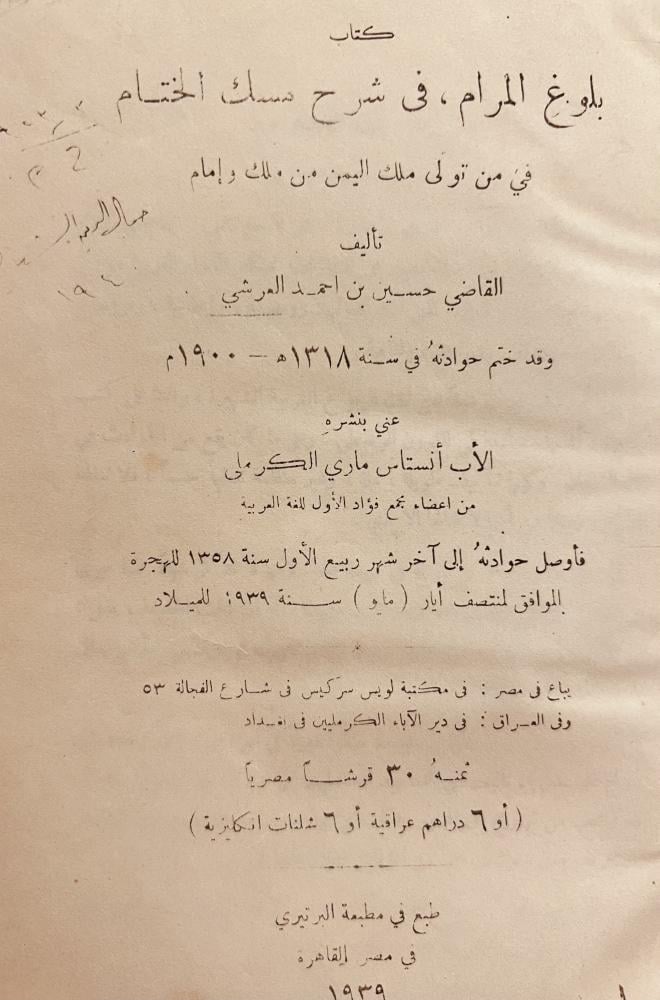 كتاب
بلوغ المرام ، فى شرح مسك الختام
في من تولى ملك اليمن من ملك وإمام
تأليف
القاضي حسين بن احمد العرشي
وقد ختم حوادثهُ في سنة ١٣١٨ه – ١٩٠٠م
عني بنشرهِ
الأب أنستاس ماري الكرملى
من اعضاء مجمع فؤاد الأول للغة العربية
فأوصل حوادثهُ إلى آخر شهر ربيع الأول سنة ١٣٥٨ للهجرة
الموافق لمنتصف أيار ( مايو ) سنة ١٩٣٩ للميلاد
يباع فى مصر : فى مكتبة لويس سركيس فى شارع الفجالة ٥٣
وفى العراق : فى دير الآباء الكرمليين فى بغداد
ثمنهُ ٣٠ قرشاً مصرياً
( أو ٦ دراهم عراقية أو ٦ شلنات انكليزية )
طبع في مطبعة البرتيري
في مصر القاهرة
١٩٣٩